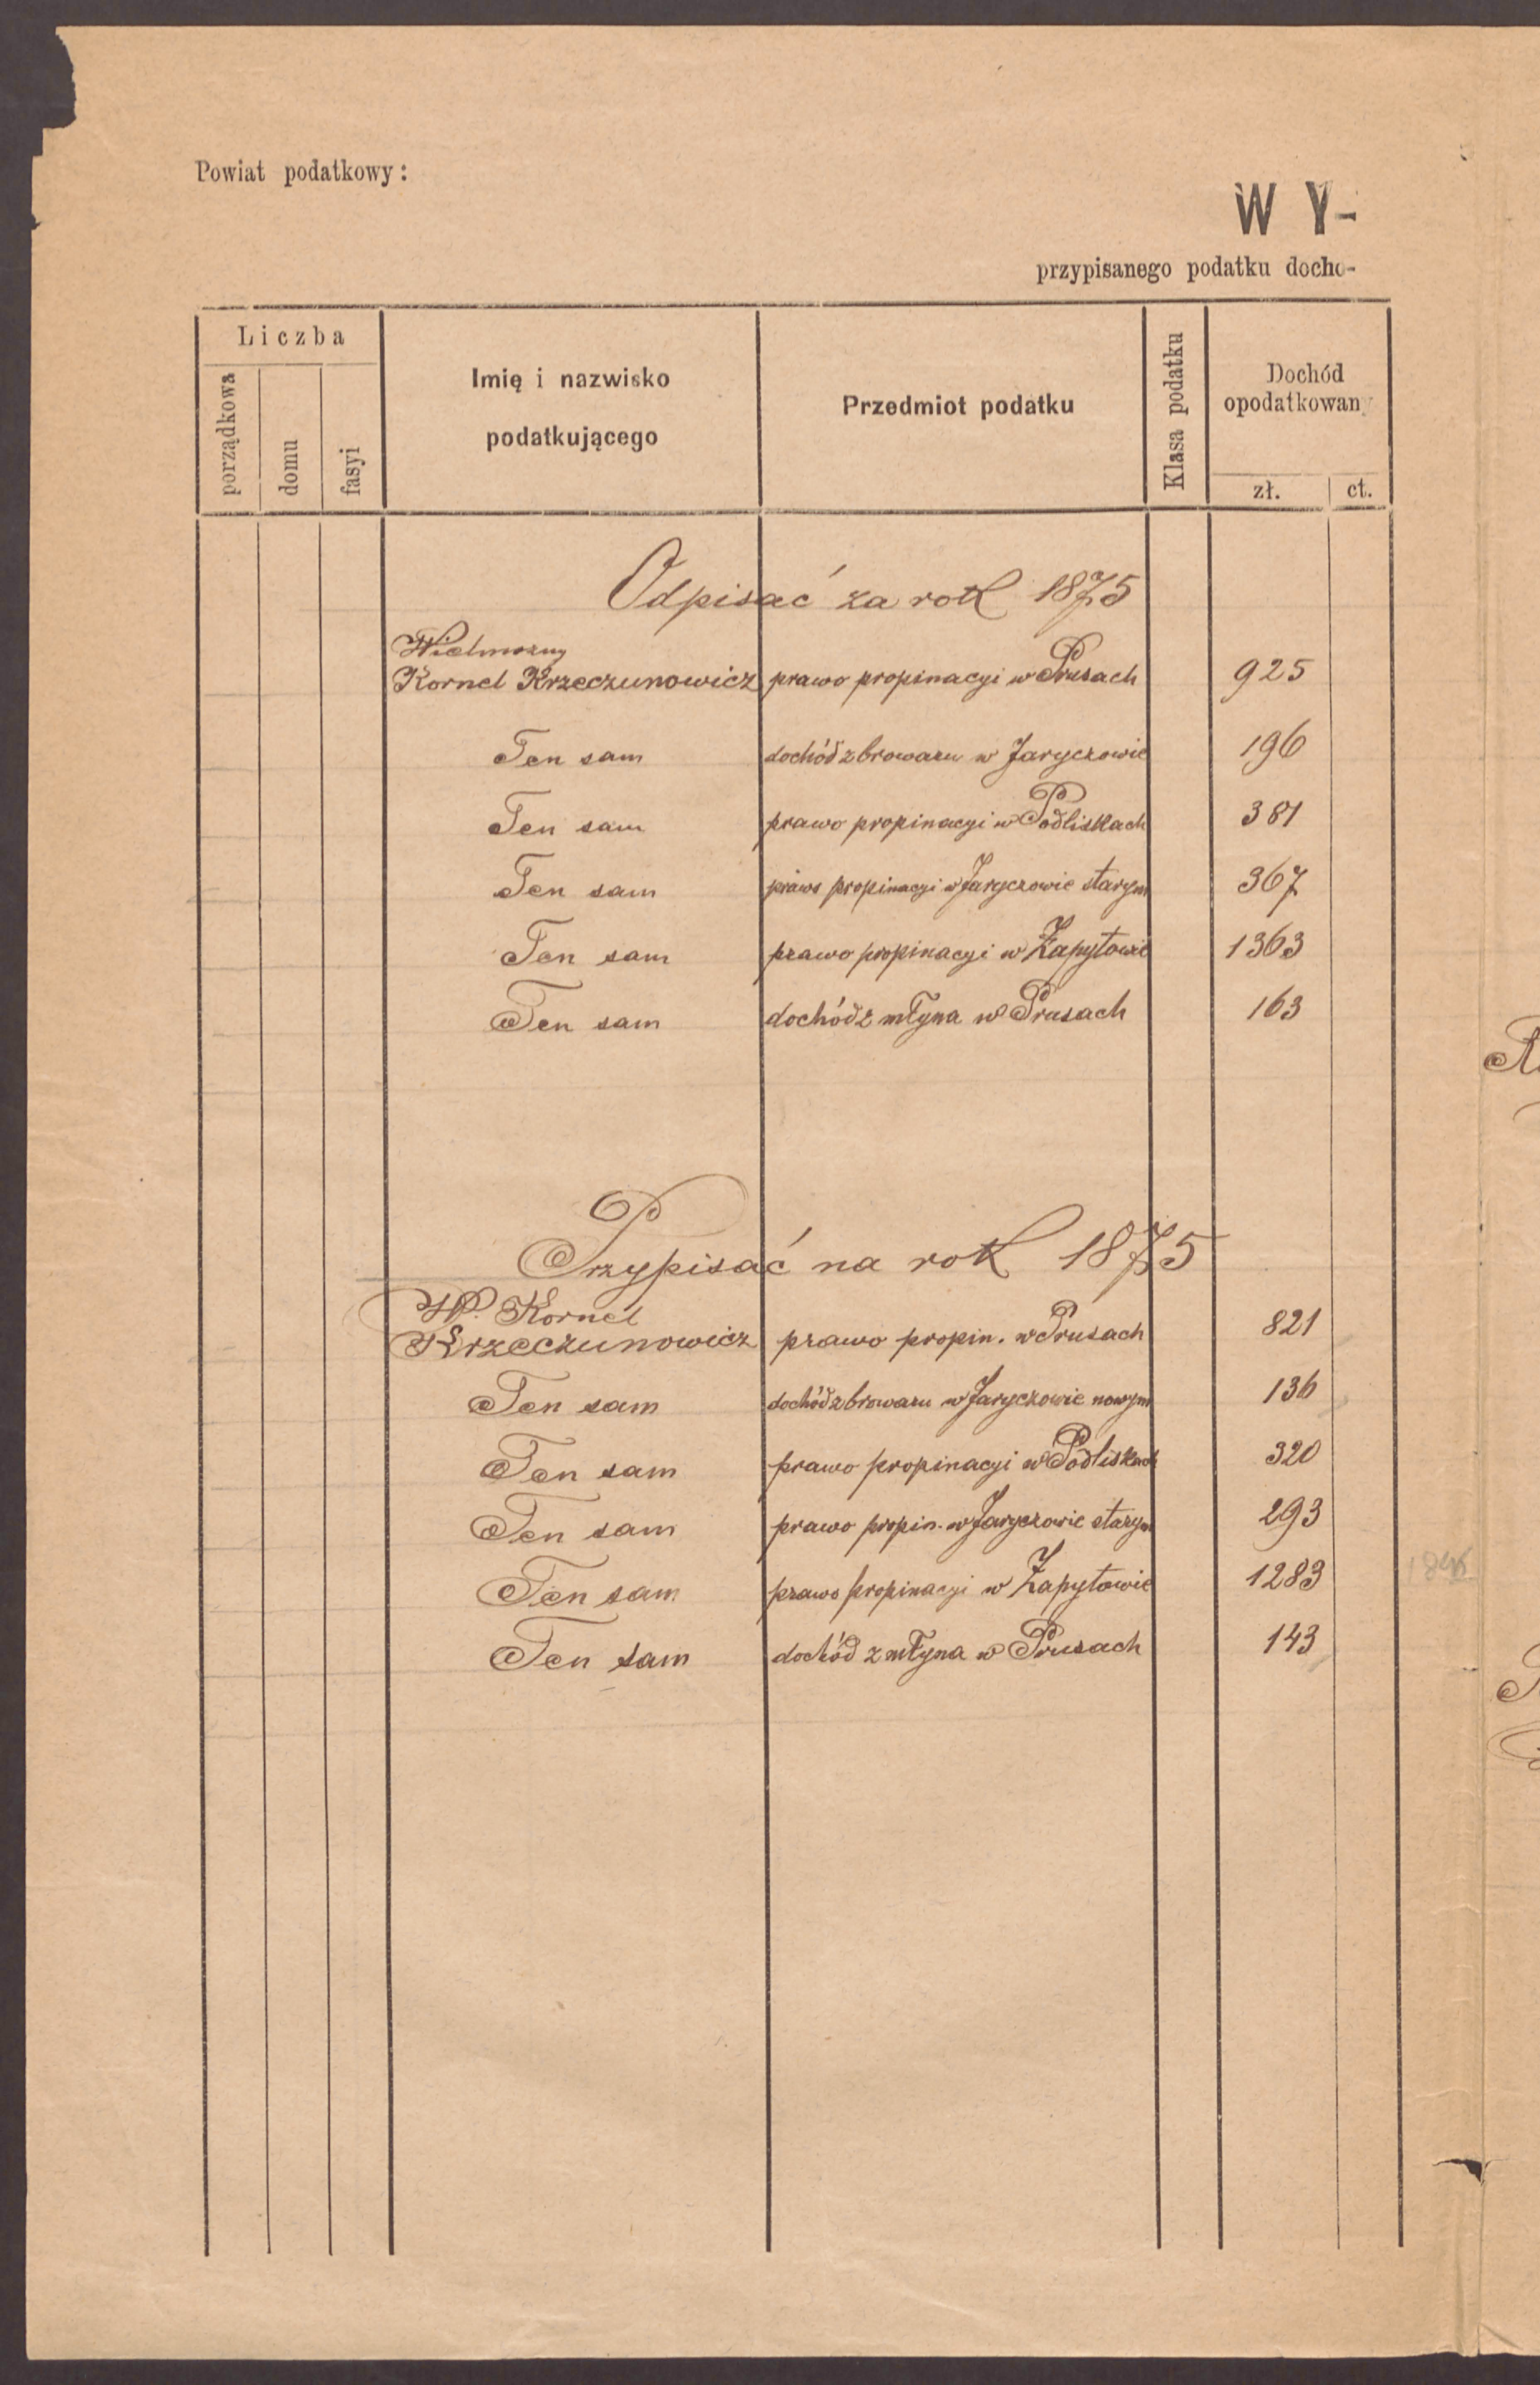 Powiat podatkowy:
WY-
przypisanego podatku docho-
Liczba
porządkowa
domu
fasyi
Imię i nazwisko
podatkującego
Przedmiot podatku
Klasa podatku
Dochód
opodatkowany
zł. ct.
Odpisać za rok 1875
Wielmożny
Kornel Krzeczunowicz prawo propinacyi w Prusach 925
Ten sam dochód z browaru w Jaryczowie 196
Ten sam prawo propinacyi w Podliskach 381
Ten sam prawo propinacyi w Jaryczowie starym 367
Ten sam prawo propinacyi w Zapytowie 1363
Ten sam dochód z młyna w Prusach 163
Przypisać na rok 1875
WP. Kornel
Krzeczunowicz prawo propin. w Prusach 821
Ten sam dochód z browaru w Jaryczowie nowym 136
Ten sam prawo propinacyi w Podliskach 320
Ten sam prawo propin. w Jaryczowie starym 293
Ten sam prawo propinacyi w Zapytowie 1283
Ten sam dochód z młyna w Prusach 143